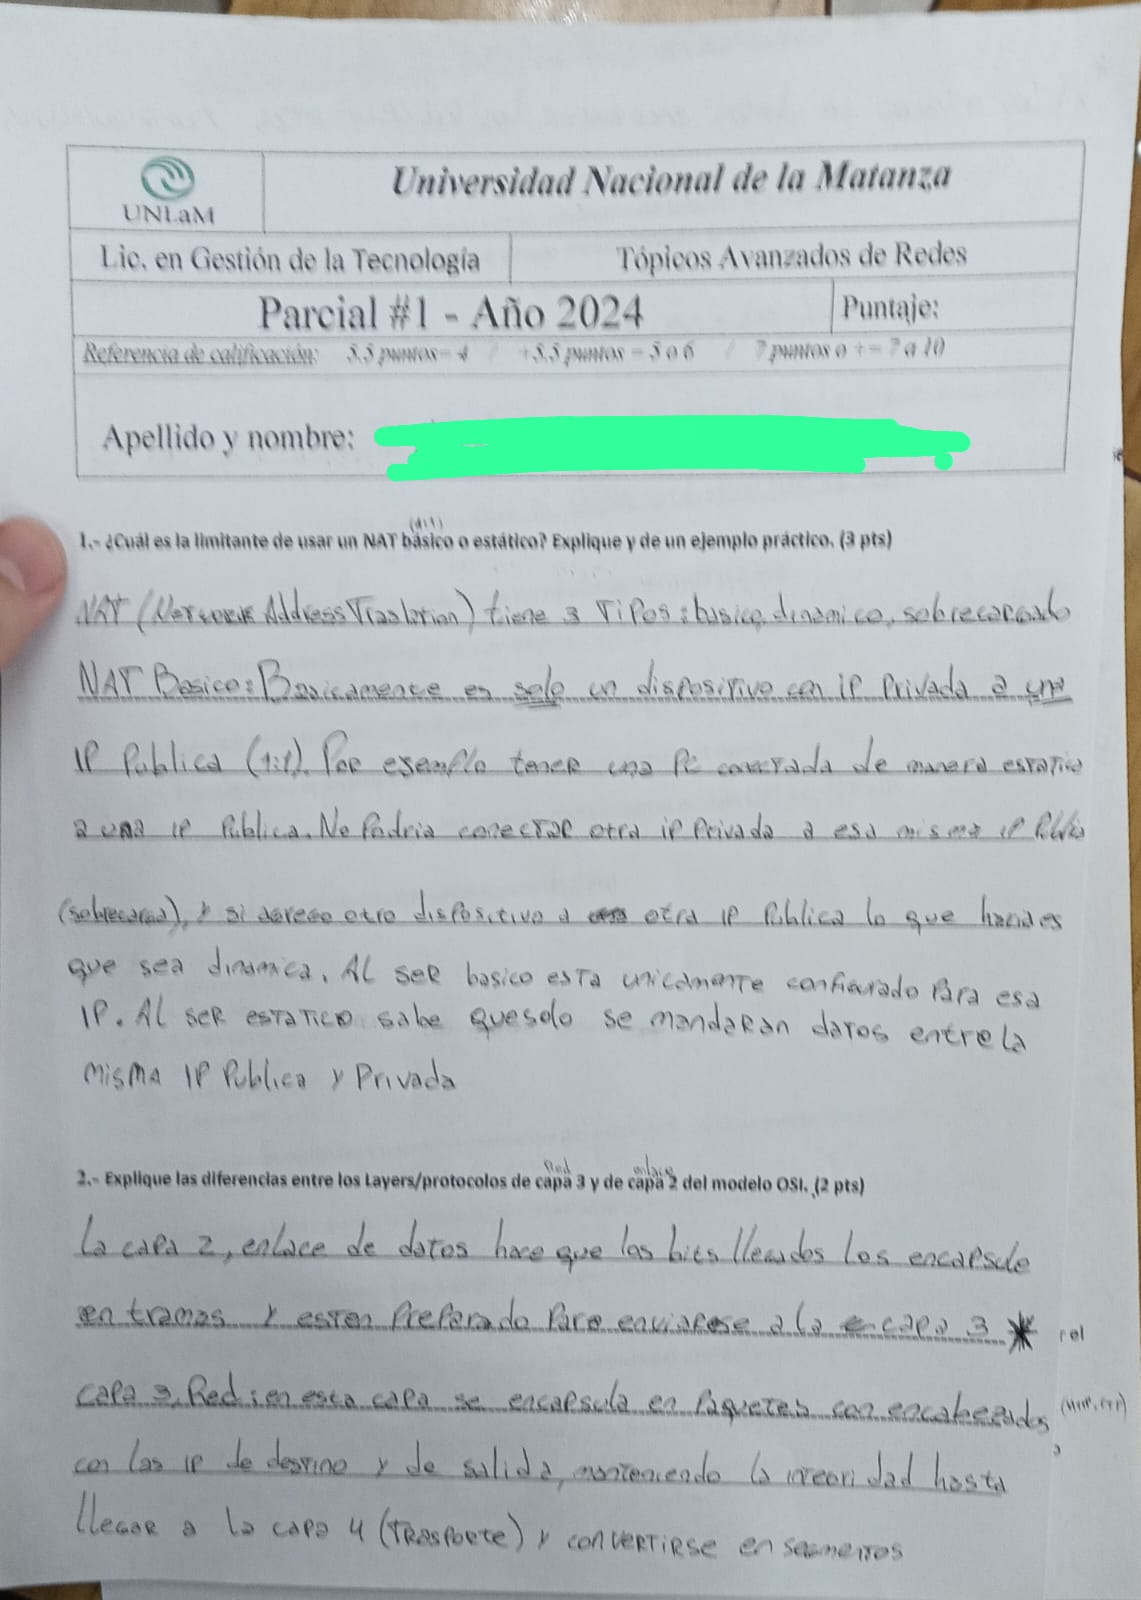 UNLaM
Universidad Nacional de la Matanza
Lic. en Gestión de la Tecnología
Tópicos Avanzados de Redes
Parcial #1 - Año 2024
Puntaje:
Referencia de calificación: 5.5 puntos= 4 / +5.5 puntos = 5 o 6 / 7 puntos o + = 7 a 10
Apellido y nombre:
(1:1)
1.- ¿Cuál es la limitante de usar un NAT básico o estático? Explique y de un ejemplo práctico. (3 pts)
NAT (Network Address Traslation) tiene 3 Tipos: basico, dinamico, sobrecargado
NAT Basico: Basicamente es solo un dispositivo con IP Privada a una
IP Publica (1:1). Por ejemplo tener una Pc conectada de manera estatica
a una IP Publica. No Podria conectar otra ip Privada a esa misma IP Publica
(sobrecarga), y si agrego otro dispositivo a otra IP Publica lo que haria es
que sea dinamica. Al ser basico esta unicamente configurado Para esa
IP. Al ser estatico sabe que solo se mandaran datos entre la
misma IP Publica y Privada
Red enlace
2.- Explique las diferencias entre los Layers/protocolos de capa 3 y de capa 2 del modelo OSI. (2 pts)
La capa 2, enlace de datos hace que los bits llegados los encapsule
en tramas y esten Preparado Para enviarse a la capa 3 *
capa 3, Red: en esta capa se encapsula en Paquetes con encabezados
con las IP de destino y de salida, manteniendo la integridad hasta
llegar a la capa 4 (Trasporte) y convertirse en segmentos